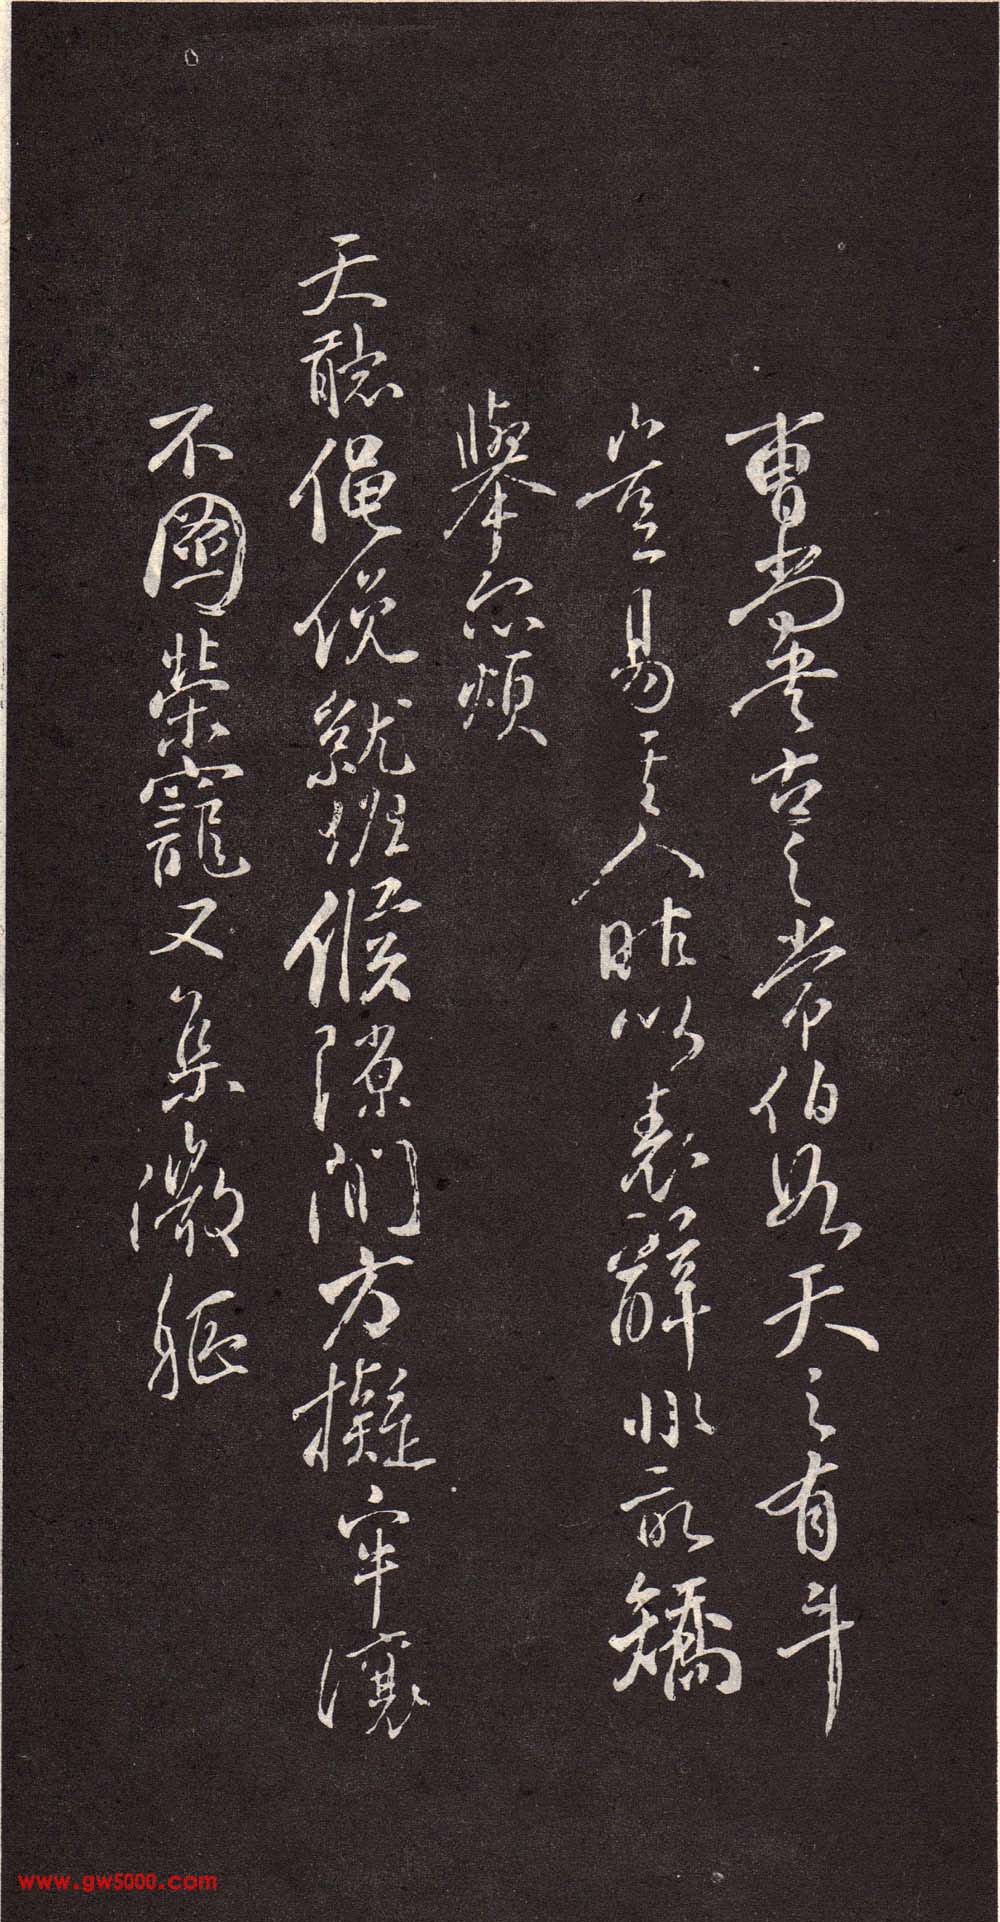 曹尚書古之常伯㕥天之有斗
豈易其人昨以表辭非敢矯
舉而煩
天聽俛俛就班候隙閒方擬牢讓
不圖榮寵又集微軀
www.gw5000.com